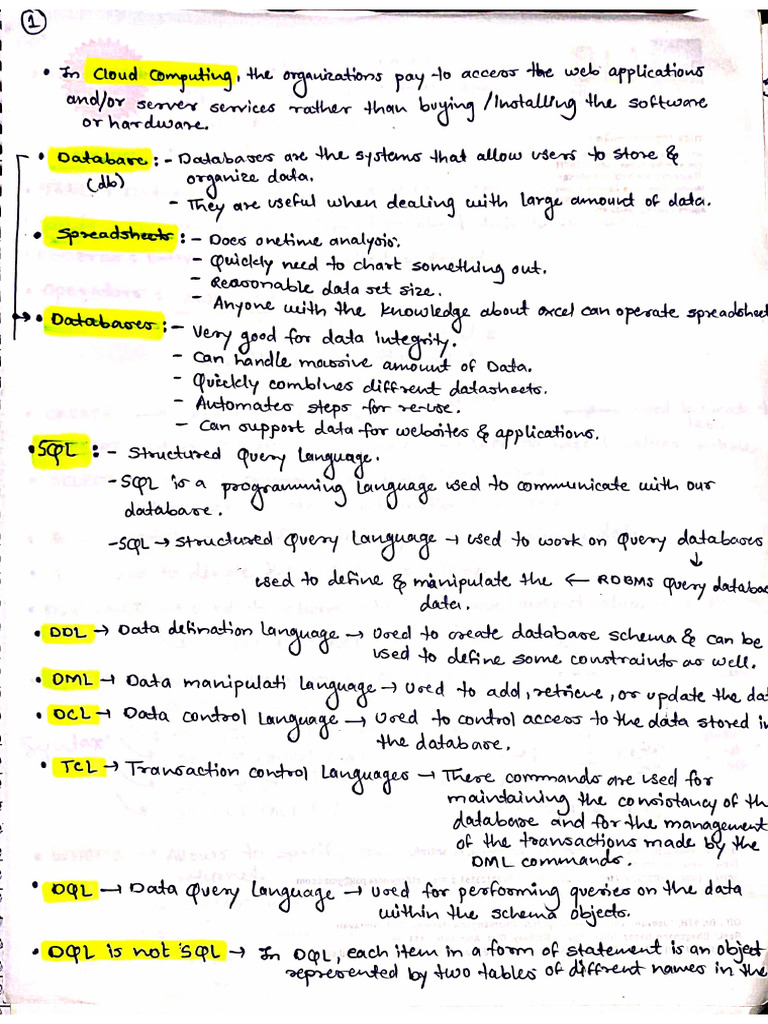 1
• In Cloud Computing, the organizations pay to access the web applications
and/or server services rather than buying/Installing the software
or hardware.
• Database :- Databases are the systems that allow users to store &
(db) organize data.
- They are useful when dealing with large amount of data.
• Spreadsheets :- Does onetime analysis.
- Quickly need to chart something out.
- Reasonable data set size.
- Anyone with the knowledge about excel can operate spreadsheet
• Databases :- Very good for data integrity.
- Can handle massive amount of Data.
- Quickly combines diffrent datasheets.
- Automates steps for re-use.
- Can support data for websites & applications.
• SQL :- Structured Query Language.
- SQL is a programming language used to communicate with our
database.
- SQL → Structured Query Language → used to work on Query databases
↓
used to define & manipulate the ← RDBMS Query databas
data.
• DDL → Data defination language → Used to create database schema & can be
used to define some constraints as well.
• DML → Data manipulati language → used to add, retrieve, or update the dat
• DCL → Data control Language → Used to control access to the data stored in
the database.
• TCL → Transaction control Languages → These commands are used for
maintaining the consistancy of th
database and for the management
of the transactions made by the
DML commands.
• DQL → Data Query Language → Used for performing queries on the data
within the schema objects.
• DQL is not SQL → In DQL, each item in a form of statement is an object
represented by two tables of diffrent names in the